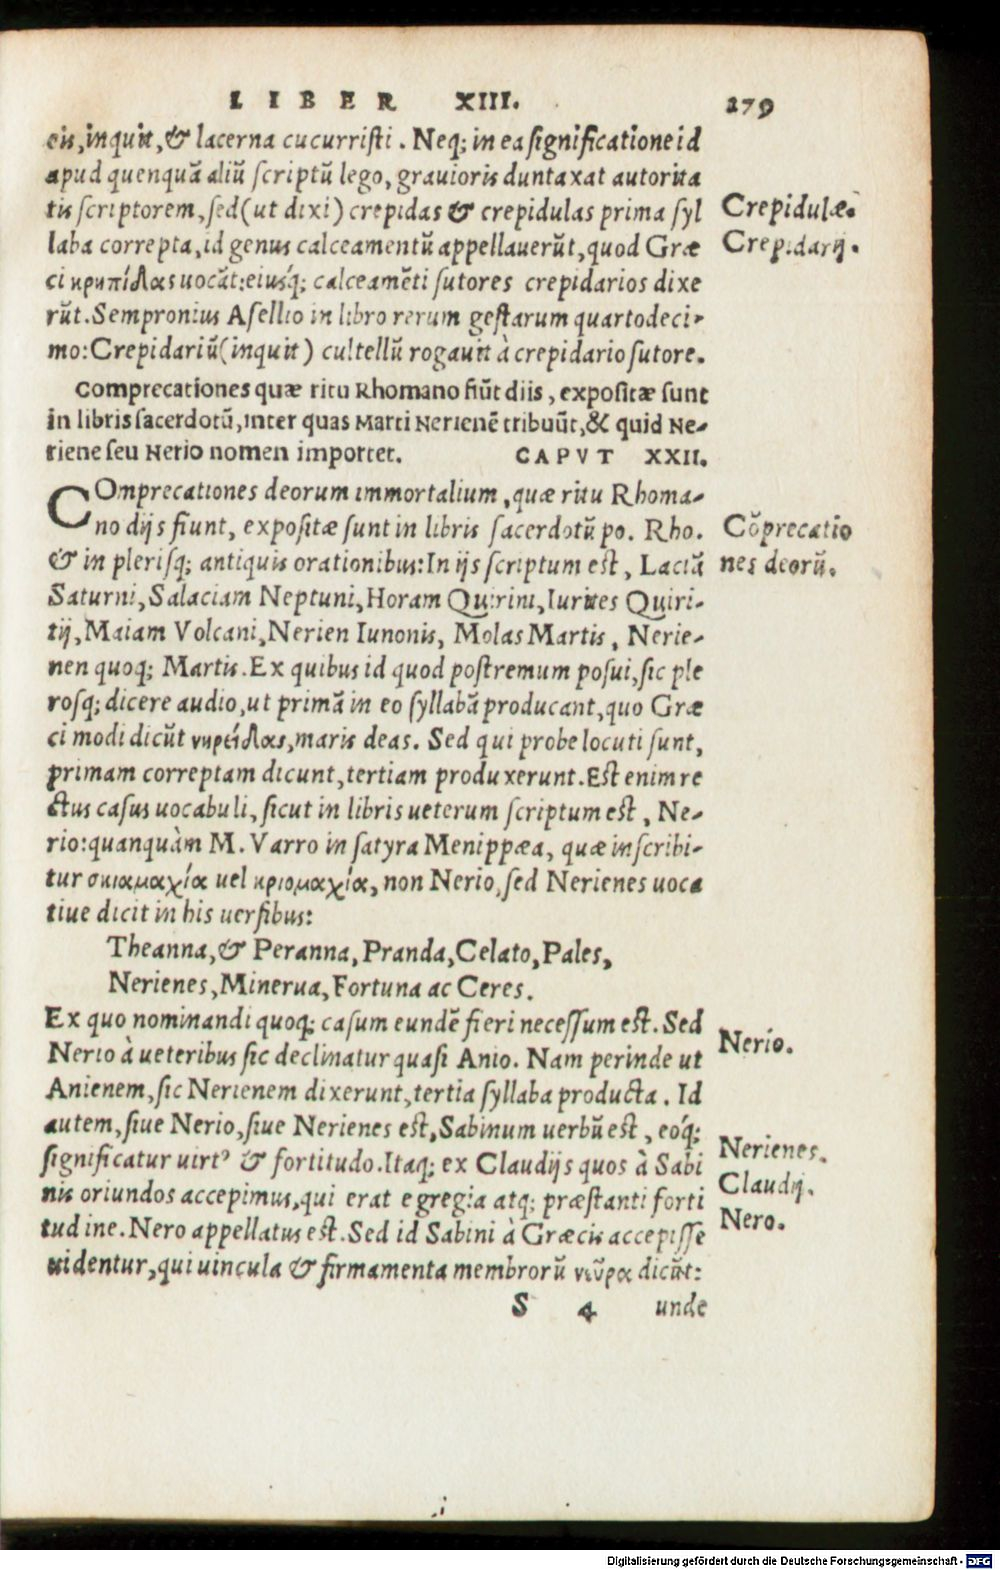 LIBER XIII. 279
cis, inquit, & lacerna cucurristi. Neq; in ea significatione id
apud quenquã aliũ scriptũ lego, grauioris duntaxat autorita
tis scriptorem, sed (ut dixi) crepidas & crepidulas prima syl
Crepidulæ.
laba correpta, id genus calceamentũ appellauerũt, quod Græ
Crepidarij.
ci κρηπίδας uocãt: eiusq́; calceamẽti sutores crepidarios dixe
rũt. Sempronius Asellio in libro rerum gestarum quartodeci-
mo: Crepidariũ (inquit) cultellũ rogauit à crepidario sutore.
Comprecationes quæ ritu Rhomano fiũt diis, expositæ sunt
in libris sacerdotũ, inter quas Marti Nerienẽ tribuũt, & quid Ne-
riene seu Nerio nomen importet. CAPVT XXII.
COmprecationes deorum immortalium, quæ ritu Rhoma-
no dijs fiunt, expositæ sunt in libris sacerdotũ po. Rho.
Cõprecatio
& in plerisq; antiquis orationibus: In ijs scriptum est, Lactã
nes deorũ.
Saturni, Salaciam Neptuni, Horam Quirini, Iurites Quiri-
tij, Maiam Volcani, Nerien Iunonis, Molas Martis, Nerie-
nen quoq; Martis. Ex quibus id quod postremum posui, sic ple
rosq; dicere audio, ut primã in eo syllabã producant, quo Græ
ci modi dicũt νηρείδας, maris deas. Sed qui probe locuti sunt,
primam correptam dicunt, tertiam produxerunt. Est enim re
ctus casus uocabuli, sicut in libris ueterum scriptum est, Ne-
rio: quanquàm M. Varro in satyra Menippæa, quæ inscribi-
tur σκιαμαχία uel κριομαχία, non Nerio, sed Nerienes uoca
tiue dicit in his uersibus:
Theanna, & Peranna, Pranda, Celato, Pales,
Nerienes, Minerua, Fortuna ac Ceres.
Ex quo nominandi quoq; casum eundẽ fieri necessum est. Sed
Nerio.
Nerio à ueteribus sic declinatur quasi Anio. Nam perinde ut
Anienem, sic Nerienem dixerunt, tertia syllaba producta. Id
autem, siue Nerio, siue Nerienes est, Sabinum uerbũ est, eoq́;
Nerienes.
significatur uirtꝰ & fortitudo. Itaq; ex Claudijs quos à Sabi
Claudij.
nis oriundos accepimus, qui erat egregia atq; præstanti forti
Nero.
tudine. Nero appellatus est. Sed id Sabini à Græcis accepisse
uidentur, qui uincula & firmamenta membrorũ νεῦρα dicũt:
S 4 unde
Digitalisierung gefördert durch die Deutsche Forschungsgemeinschaft - DFG